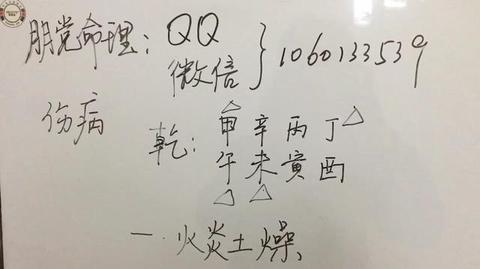 朋党命理：QQ
微信 } 1060133539
伤病
乾：甲辛丙丁
午未寅酉
一.火炎土燥